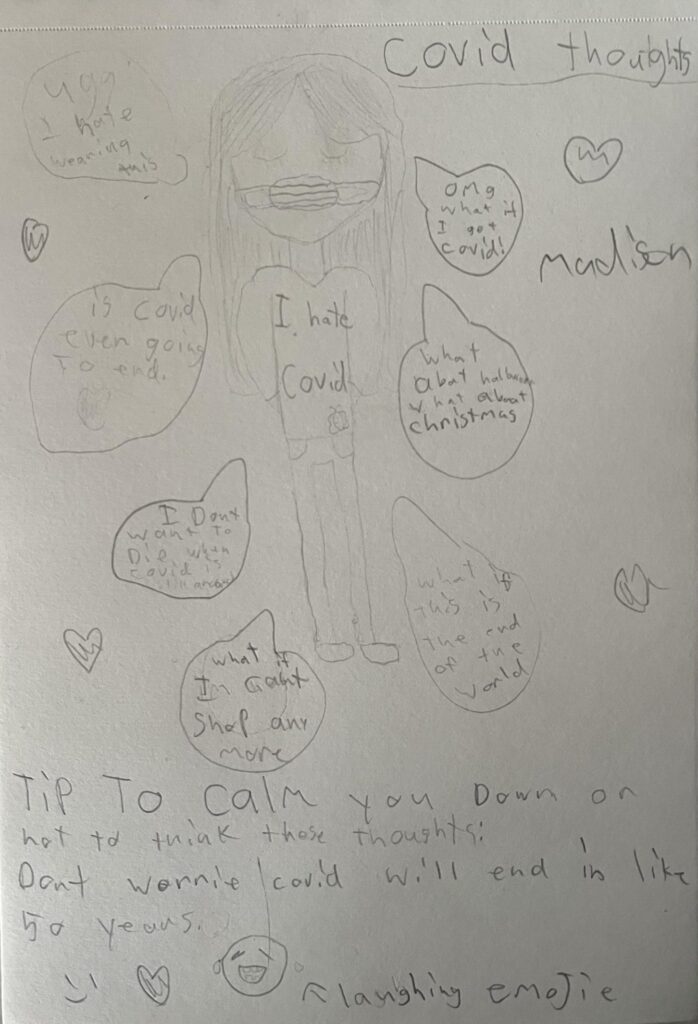 Covid thoughts
ugg
I hate
wearing
this
OMG
what if
I got
covid!
Madison
is covid
even going
To end.
I hate
Covid
what
abat
what about
christmas
I Dont
want to
Die when
covid is
what if
this is
the end
of the
world
what if
Im cant
shop any
more
Tip To calm you Down on
not to think those thoughts:
Dont wornie covid will end in like
50 years.
laughing emojie